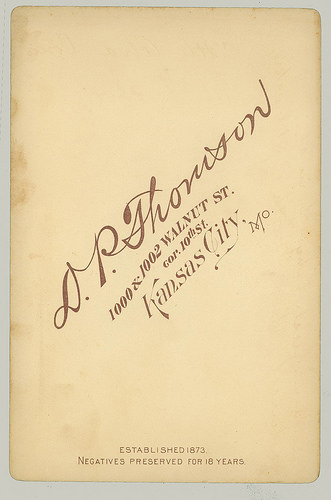 D. P. Thomson
1000 & 1002 WALNUT ST.
COR. 10th St.
Kansas City, Mo.
ESTABLISHED 1873.
NEGATIVES PRESERVED FOR 18 YEARS.